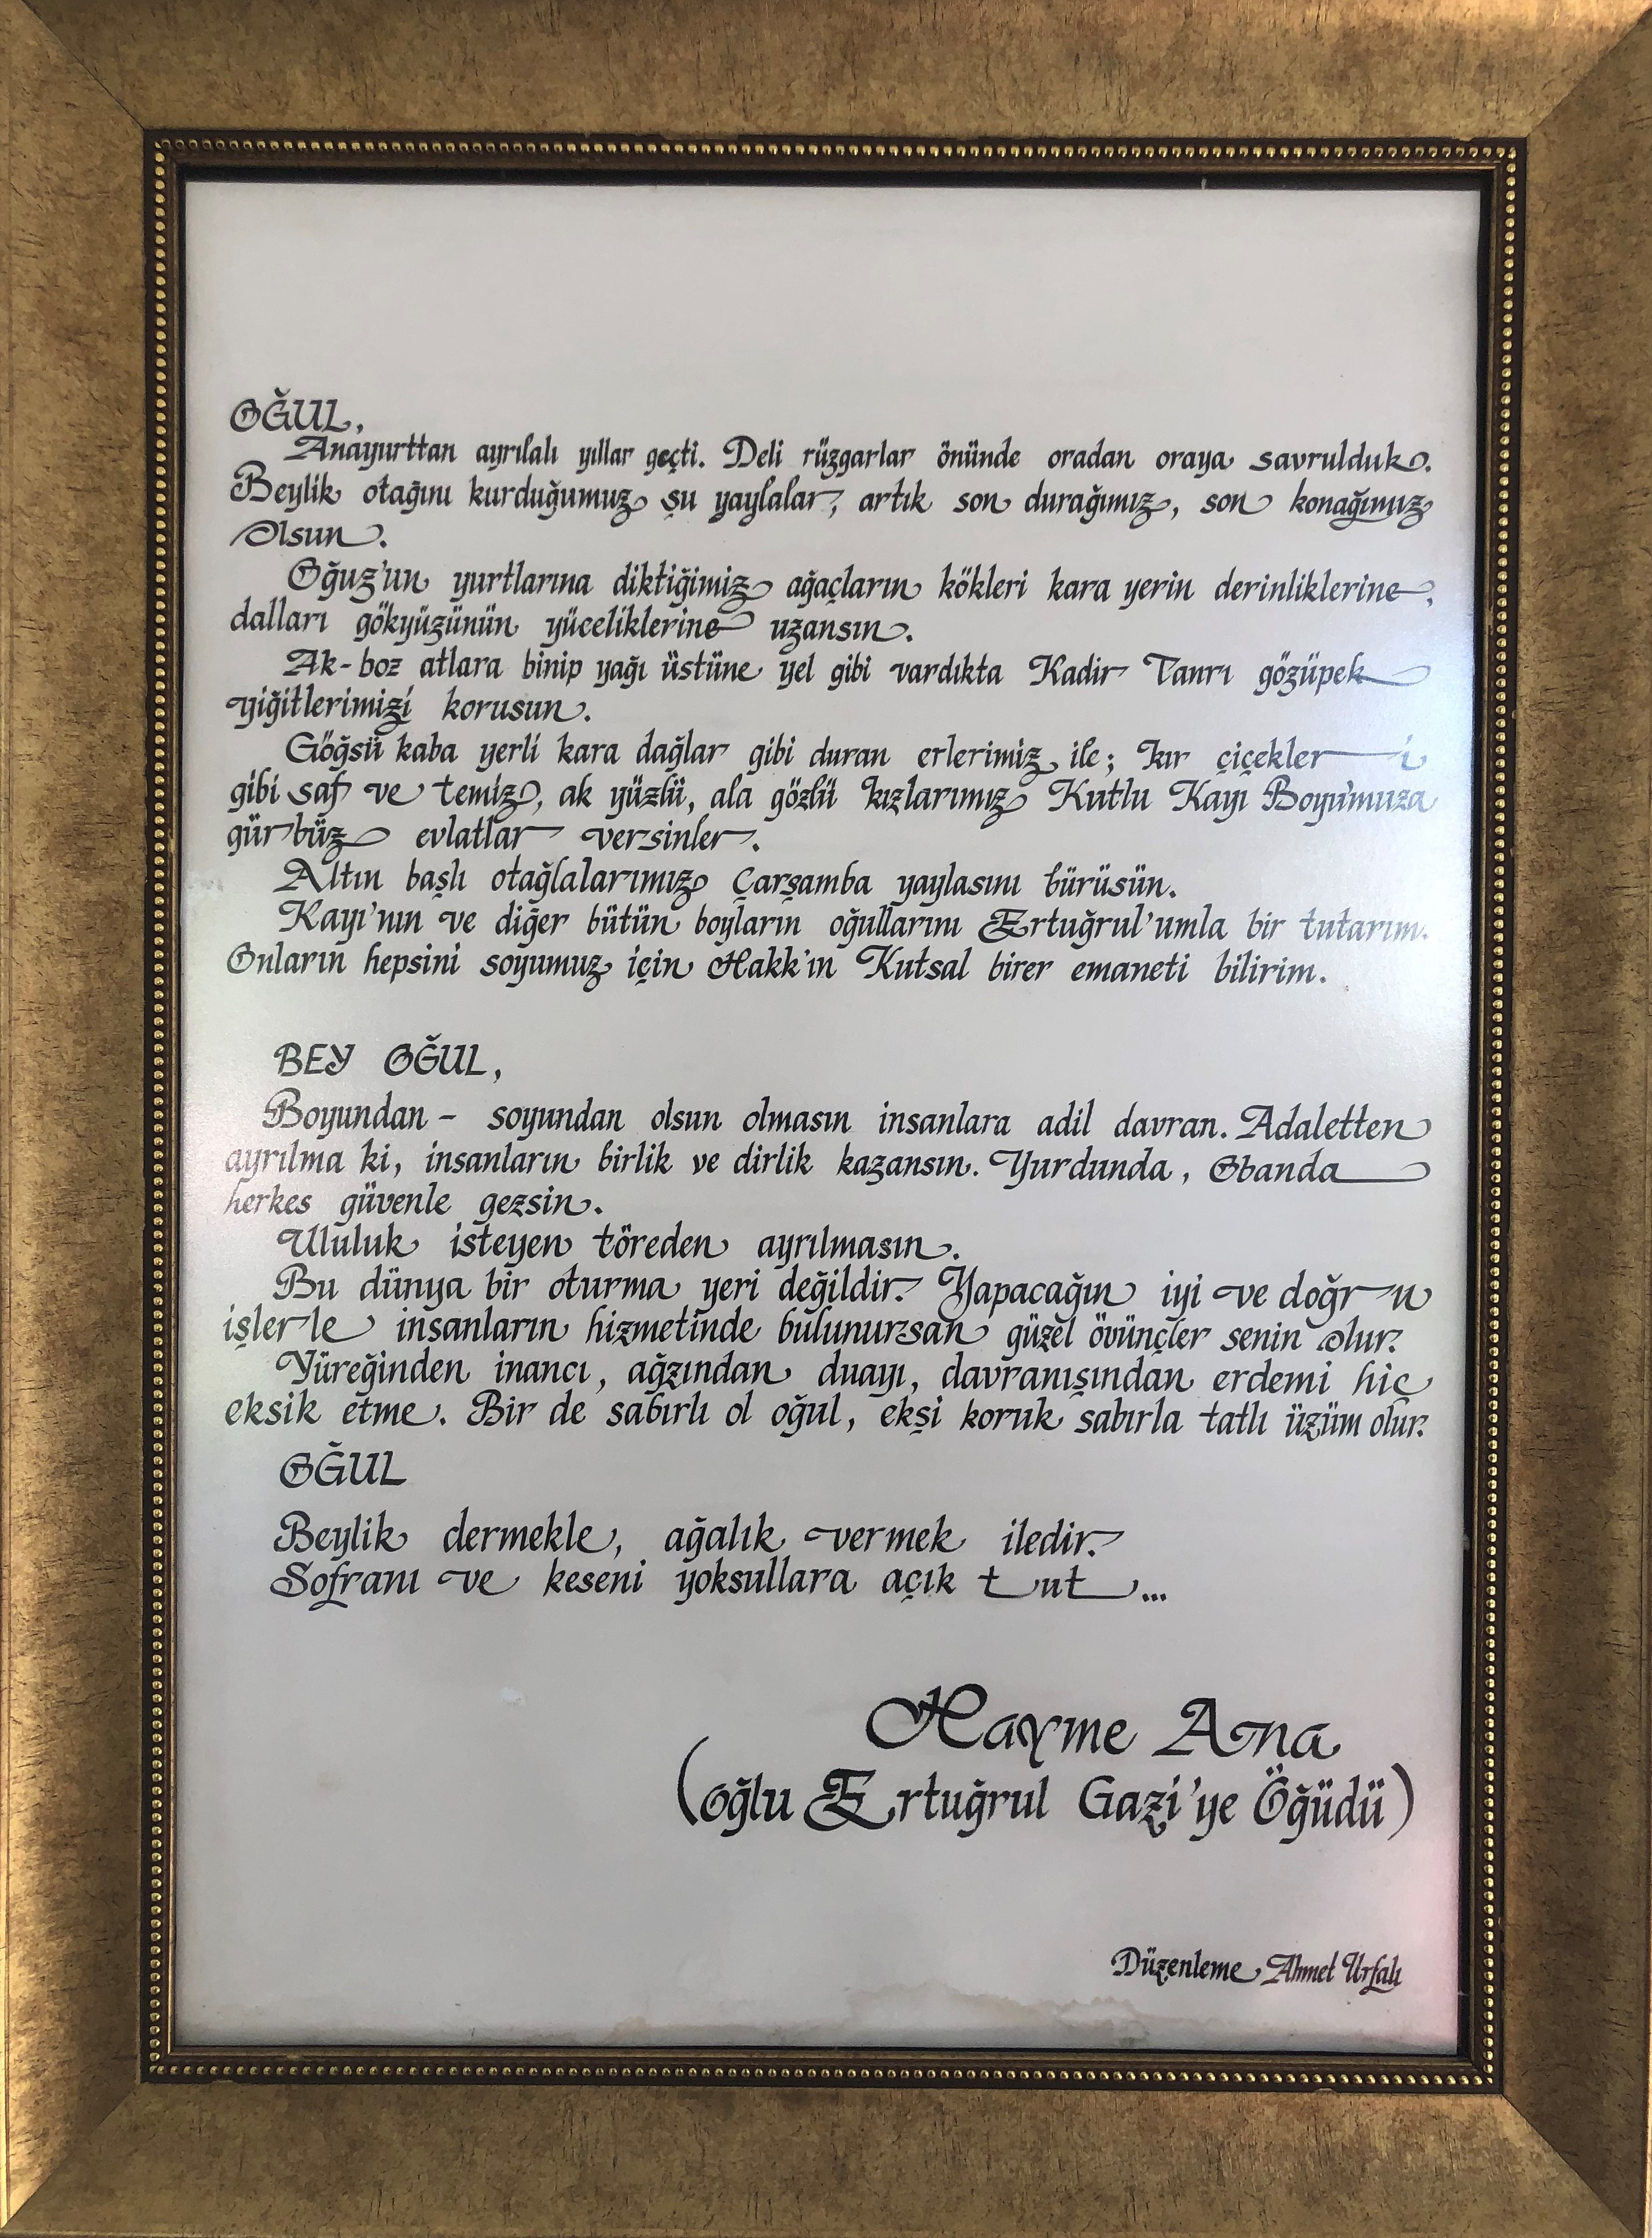 OĞUL,
Anayurttan ayrılalı yıllar geçti. Deli rüzgarlar önünde oradan oraya savrulduk.
Beylik otağını kurduğumuz şu yaylalar, artık son durağımız, son konağımız
Olsun.
Oğuz'un yurtlarına diktiğimiz ağaçların kökleri kara yerin derinliklerine,
dalları gökyüzünün yüceliklerine uzansın.
Ak-boz atlara binip yağı üstüne yel gibi vardıkta Kadir Tanrı gözüpek
yiğitlerimizi korusun.
Göğsü kaba yerli kara dağlar gibi duran erlerimiz ile; kır çiçekleri
gibi saf ve temiz, ak yüzlü, ala gözlü kızlarımız Kutlu Kayı Boyu'muza
gürbüz evlatlar versinler.
Altın başlı otağlalarımız Çarşamba yaylasını bürüsün.
Kayı'nın ve diğer bütün boyların oğullarını Ertuğrul'umla bir tutarım.
Onların hepsini soyumuz için Hakk'ın Kutsal birer emaneti bilirim.
BEY OĞUL,
Boyundan - soyundan olsun olmasın insanlara adil davran. Adaletten
ayrılma ki, insanların birlik ve dirlik kazansın. Yurdunda, Obanda
herkes güvenle gezsin.
Ululuk isteyen töreden ayrılmasın.
Bu dünya bir oturma yeri değildir. Yapacağın iyi ve doğru
işlerle insanların hizmetinde bulunursan güzel övünçler senin olur.
Yüreğinden inancı, ağzından duayı, davranışından erdemi hiç
eksik etme. Bir de sabırlı ol oğul, ekşi koruk sabırla tatlı üzüm olur.
OĞUL
Beylik dermekle, ağalık vermek iledir.
Sofranı ve keseni yoksullara açık tut...
Hayme Ana
(oğlu Ertuğrul Gazi'ye Öğüdü)
Düzenleme Ahmet Urfalı